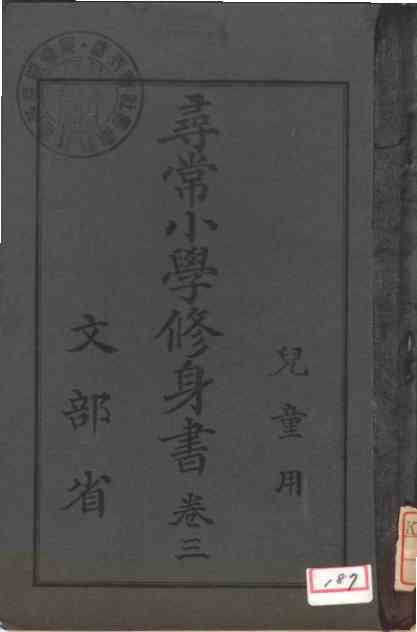 兒童用
尋常小學修身書 卷三
文部省
187
K